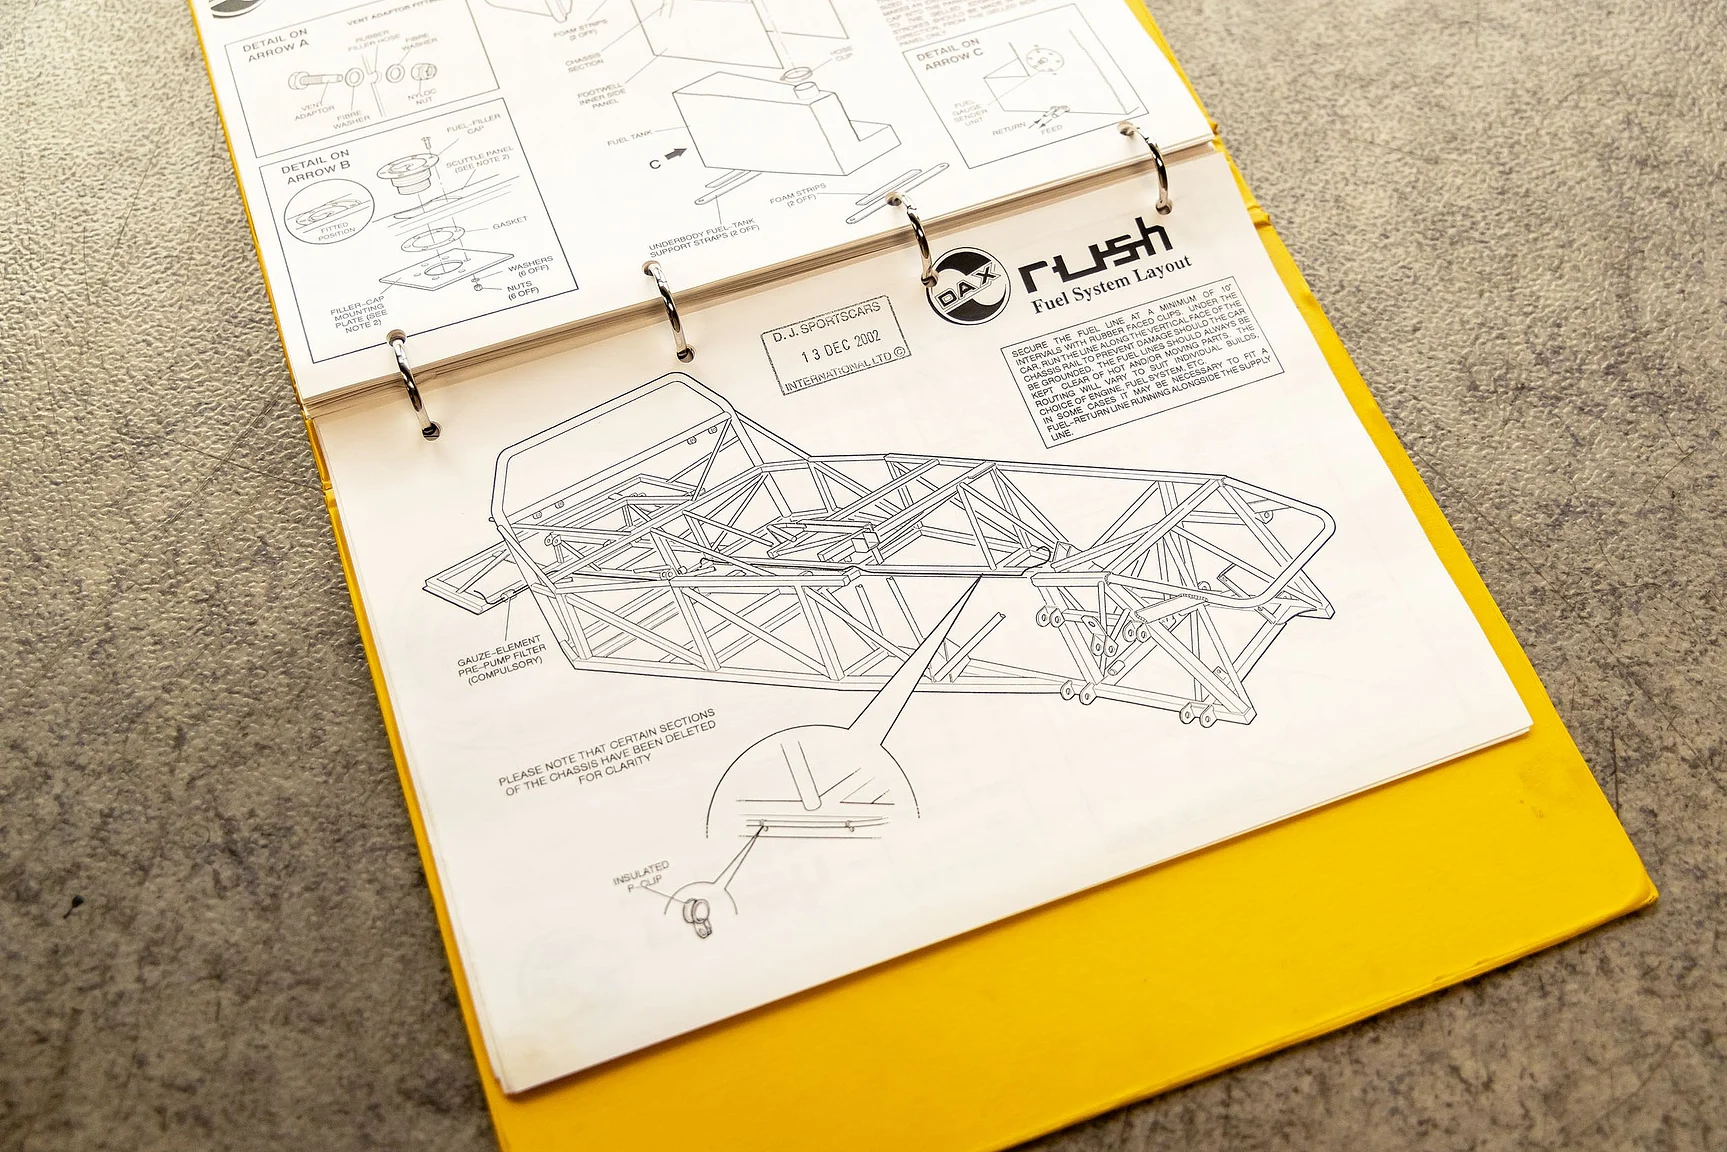 VENT ADAPTOR FITTING
DETAIL ON
ARROW A
RUBBER
FILLER HOSE
FIBRE
WASHER
VENT
ADAPTOR
FIBRE
WASHER
NYLOC
NUT
DETAIL ON
ARROW B
FUEL-FILLER
CAP
SCUTTLE PANEL
(SEE NOTE 2)
FITTED
POSITION
GASKET
WASHERS
(6 OFF)
NUTS
(6 OFF)
FILLER-CAP
MOUNTING
PLATE (SEE
NOTE 2)
FOAM STRIPS
(2 OFF)
CHASSIS
SECTION
FOOTWELL
INNER SIDE
PANEL
HOSE
CLIP
FUEL TANK
C
FOAM STRIPS
(2 OFF)
UNDERBODY FUEL-TANK
SUPPORT STRAPS (2 OFF)
PANEL ONLY
DETAIL ON
ARROW C
FUEL
GAUGE
SENDER
UNIT
RETURN
FEED
DAX
rush
Fuel System Layout
D.J. SPORTSCARS
13 DEC 2002
INTERNATIONAL LTD ©
SECURE THE FUEL LINE AT A MINIMUM OF 10"
INTERVALS WITH RUBBER FACED CLIPS. UNDER THE
CAR, RUN THE LINE ALONG THE VERTICAL FACE OF THE
CHASSIS RAIL, TO PREVENT DAMAGE SHOULD THE CAR
BE GROUNDED. THE FUEL LINES SHOULD ALWAYS BE
KEPT CLEAR OF HOT AND/OR MOVING PARTS. THE
ROUTING WILL VARY TO SUIT INDIVIDUAL BUILDS,
CHOICE OF ENGINE, FUEL SYSTEM, ETC.
IN SOME CASES IT MAY BE NECESSARY TO FIT A
FUEL-RETURN LINE RUNNING ALONGSIDE THE SUPPLY
LINE.
GAUZE-ELEMENT
PRE-PUMP FILTER
(COMPULSORY)
PLEASE NOTE THAT CERTAIN SECTIONS
OF THE CHASSIS HAVE BEEN DELETED
FOR CLARITY
INSULATED
P-CLIP